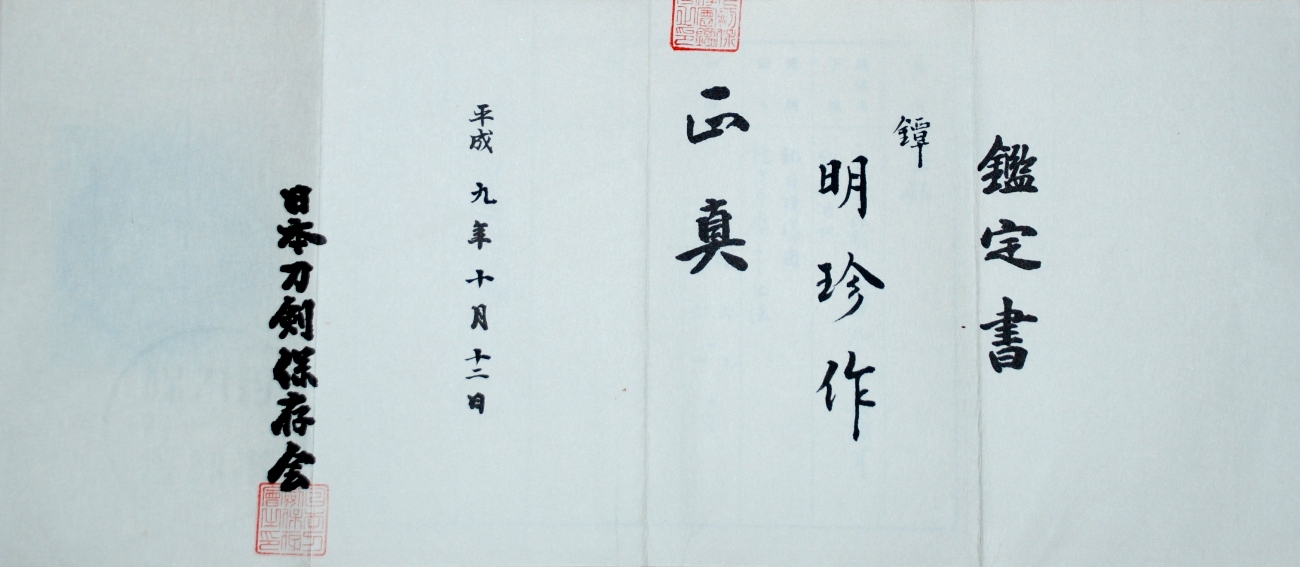 鑑定書
鐔
明珍作
正真
平成九年十月十二日
日本刀剣保存会